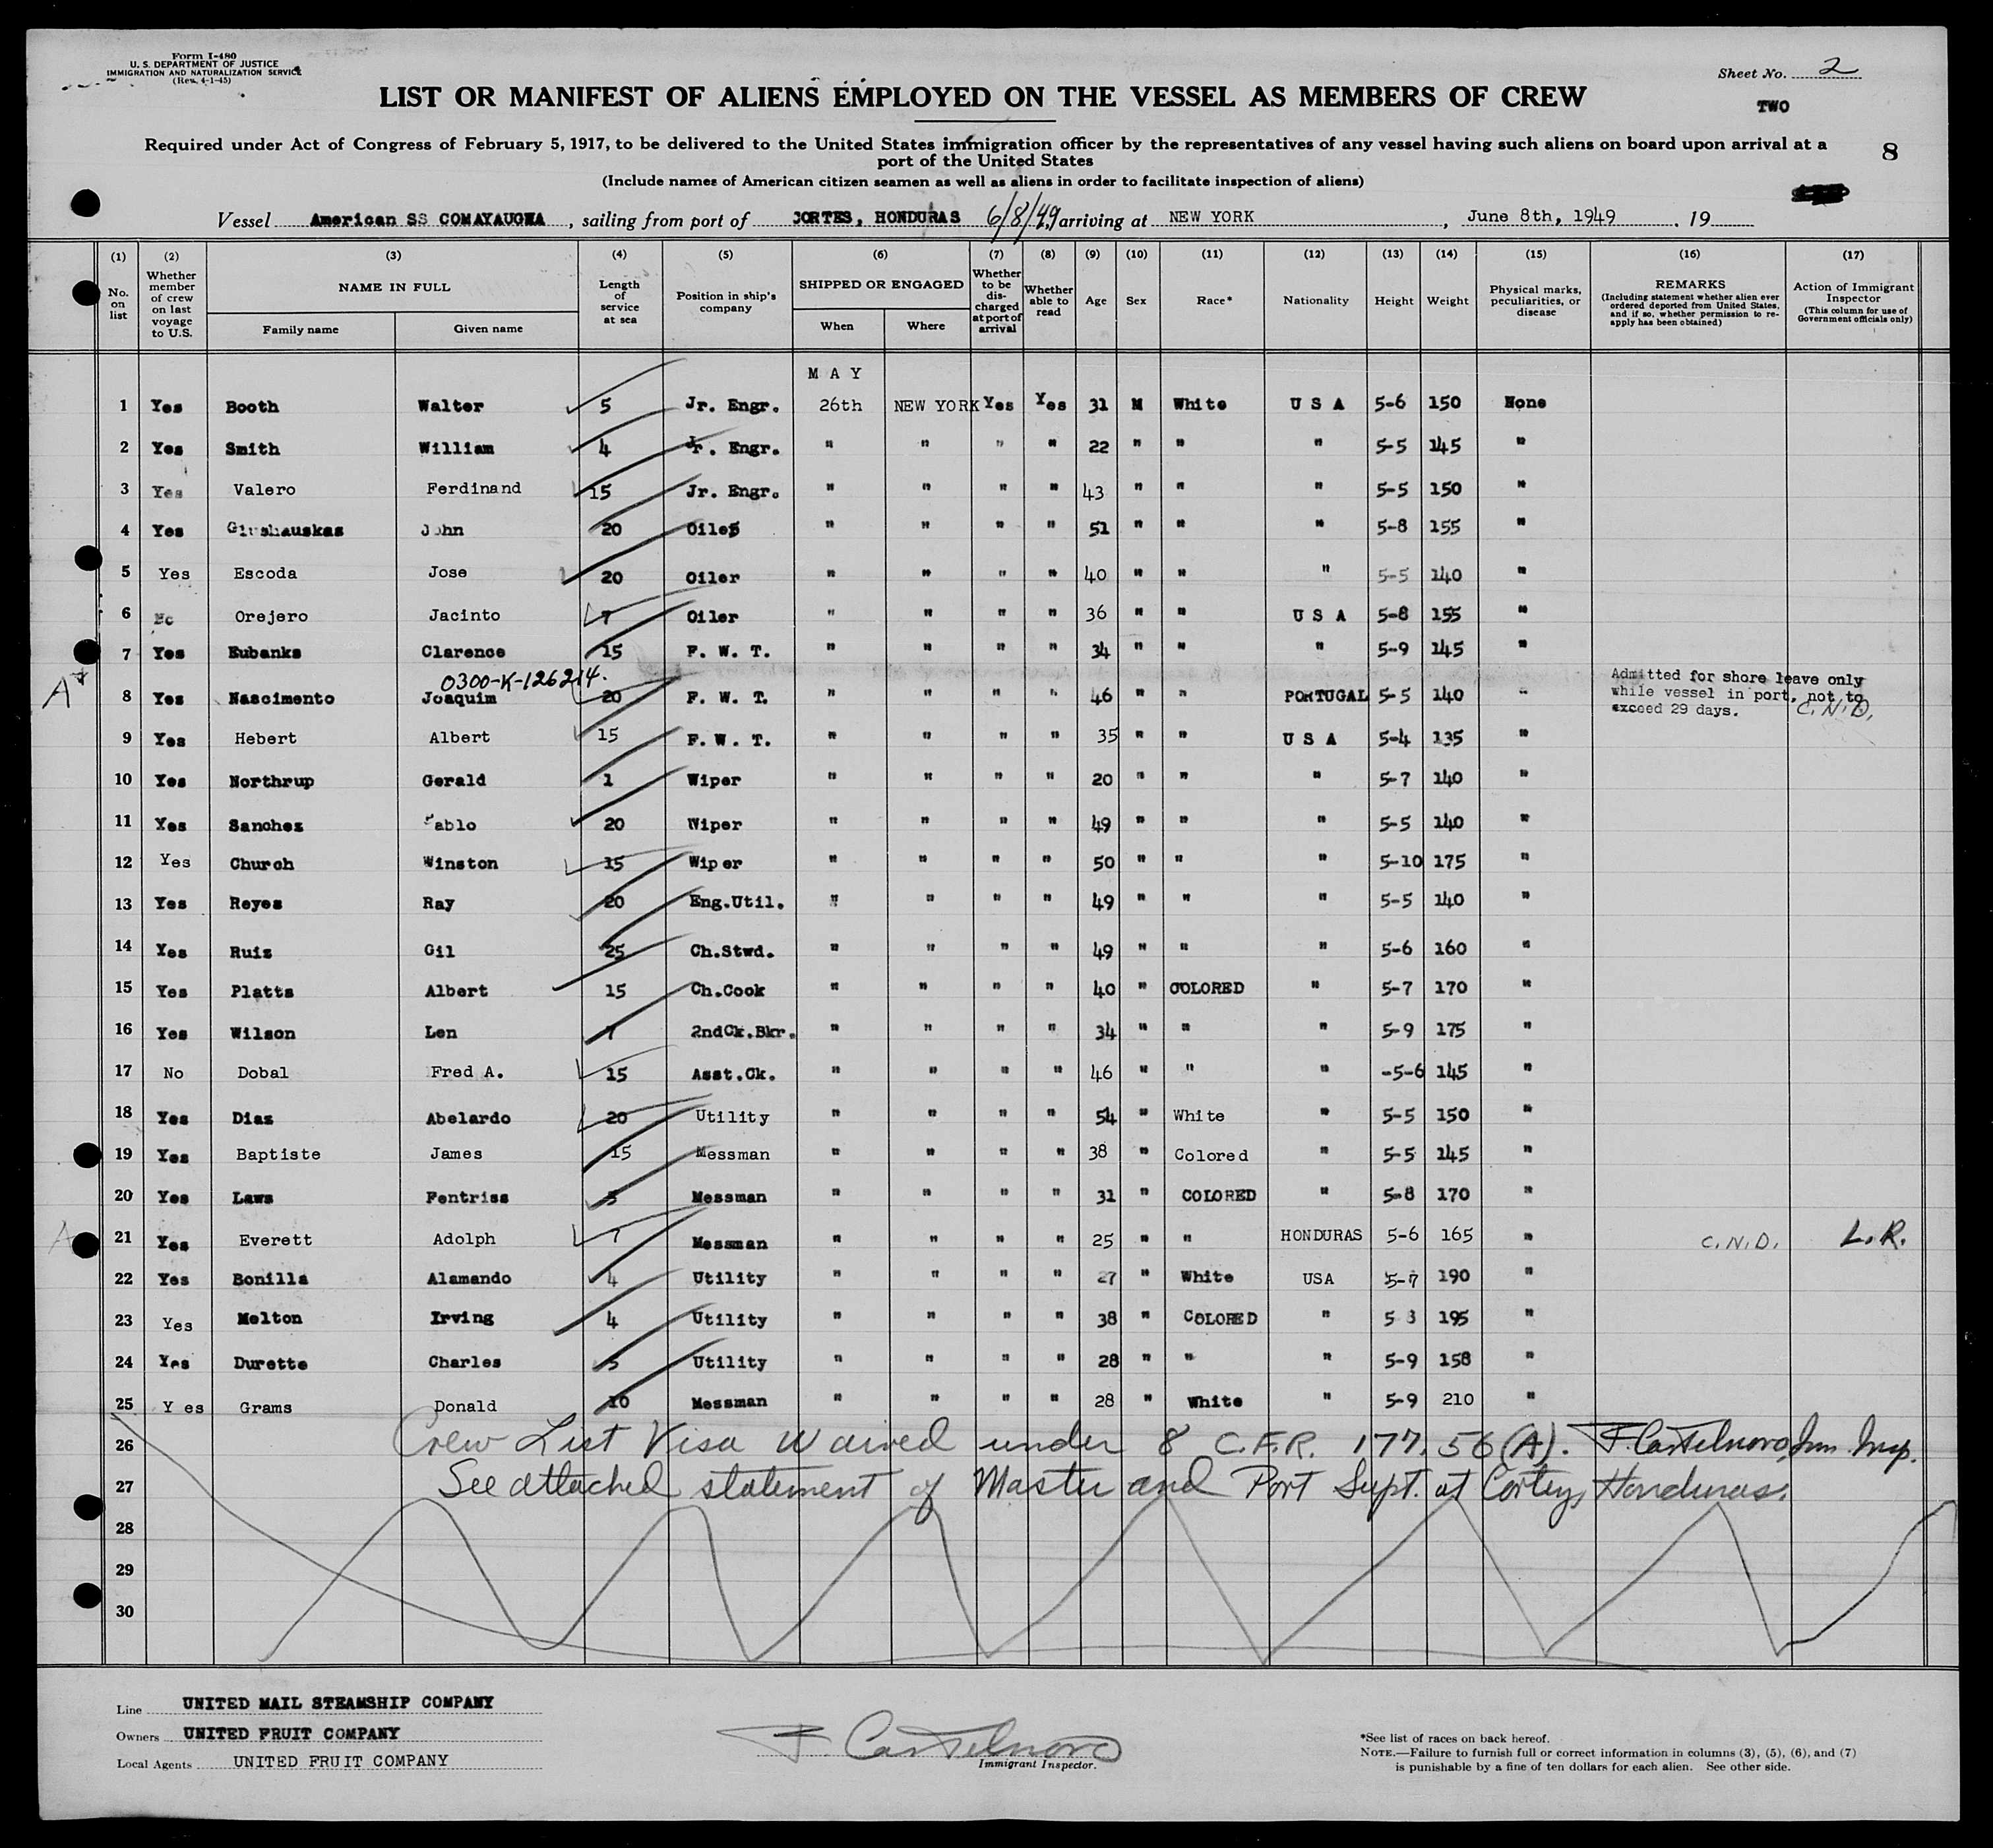 Form I-480
U. S. DEPARTMENT OF JUSTICE
IMMIGRATION AND NATURALIZATION SERVICE
(Rev. 4-1-45)
Sheet No. 2
TWO
8
LIST OR MANIFEST OF ALIENS EMPLOYED ON THE VESSEL AS MEMBERS OF CREW
Required under Act of Congress of February 5, 1917, to be delivered to the United States immigration officer by the representatives of any vessel having such aliens on board upon arrival at a
port of the United States
(Include names of American citizen seamen as well as aliens in order to facilitate inspection of aliens)
Vessel American SS COMAYAUGWA, sailing from port of CORTES, HONDURAS 6/8/49 arriving at NEW YORK, June 8th, 1949. 19
(1) No. on list
(2) Whether member of crew on last voyage to U.S.
(3) NAME IN FULL Family name Given name
(4) Length of service at sea
(5) Position in ship's company
(6) SHIPPED OR ENGAGED When Where
(7) Whether to be discharged at port of arrival
(8) Whether able to read
(9) Age
(10) Sex
(11) Race*
(12) Nationality
(13) Height
(14) Weight
(15) Physical marks, peculiarities, or disease
(16) REMARKS (Including statement whether alien ever ordered deported from United States, and if so, whether permission to re-apply has been obtained)
(17) Action of Immigrant Inspector (This column for use of Government officials only)
MAY
1 Yes Booth Walter 5 Jr. Engr. 26th NEW YORK Yes Yes 31 M White U S A 5-6 150 None
2 Yes Smith William 4 Jr. Engr. " " " " 22 " " " 5-5 145 "
3 Yes Valero Ferdinand 15 Jr. Engr. " " " " 43 " " " 5-5 150 "
4 Yes John 20 Oiler " " " " 51 " " " 5-8 155 "
5 Yes Escoda Jose 20 Oiler " " " " 40 " " " 5-5 140 "
6 No Orejero Jacinto 7 Oiler " " " " 36 " " U S A 5-8 155 "
7 Yes Eubanks Clarence 15 F. W. T. " " " " 34 " " " 5-9 145 "
0300-K-126214.
A
8 Yes Nascimento Joaquim 20 F. W. T. " " " " 46 " " PORTUGAL 5-5 140 " Admitted for shore leave only while vessel in port, not to exceed 29 days. C.N.D.
9 Yes Hebert Albert 15 F. W. T. " " " " 35 " " U S A 5-4 135 "
10 Yes Northrup Gerald 1 Wiper " " " " 20 " " " 5-7 140 "
11 Yes Sanchez Pablo 20 Wiper " " " " 49 " " " 5-5 140 "
12 Yes Church Winston 15 Wiper " " " " 50 " " " 5-10 175 "
13 Yes Reyes Ray 20 Eng.Util. " " " " 49 " " " 5-5 140 "
14 Yes Ruiz Gil 25 Ch.Stwd. " " " " 49 " " " 5-6 160 "
15 Yes Platts Albert 15 Ch.Cook " " " " 40 " COLORED " 5-7 170 "
16 Yes Wilson Len 7 2ndCk.Bkr. " " " " 34 " " " 5-9 175 "
17 No Dobal Fred A. 15 Asst.Ck. " " " " 46 " " " -5-6 145 "
18 Yes Diaz Abelardo 20 Utility " " " " 54 " White " 5-5 150 "
19 Yes Baptiste James 15 Messman " " " " 38 " Colored " 5-5 145 "
20 Yes Laws Fentriss 5 Messman " " " " 31 " COLORED " 5-8 170 "
A
21 Yes Everett Adolph 7 Messman " " " " 25 " " HONDURAS 5-6 165 " C.N.D. L.R.
22 Yes Bonilla Alamando 4 Utility " " " " 27 " White USA 5-7 190 "
23 Yes Melton Irving 4 Utility " " " " 38 " COLORED " 5 8 195 "
24 Yes Durette Charles 5 Utility " " " " 28 " " " 5-9 158 "
25 Y es Grams Donald 10 Messman " " " " 28 " White " 5-9 210 "
26 Crew List Visa Waived under 8 C.F.R. 177.56(A). F. Castelnovo, Imm. Insp.
27 See attached statement of Master and Port Supt. at Cortez, Honduras.
28
29
30
Line UNITED MAIL STEAMSHIP COMPANY
Owners UNITED FRUIT COMPANY
Local Agents UNITED FRUIT COMPANY
F. Castelnovo
Immigrant Inspector.
*See list of races on back hereof.
NOTE.—Failure to furnish full or correct information in columns (3), (5), (6), and (7)
is punishable by a fine of ten dollars for each alien. See other side.